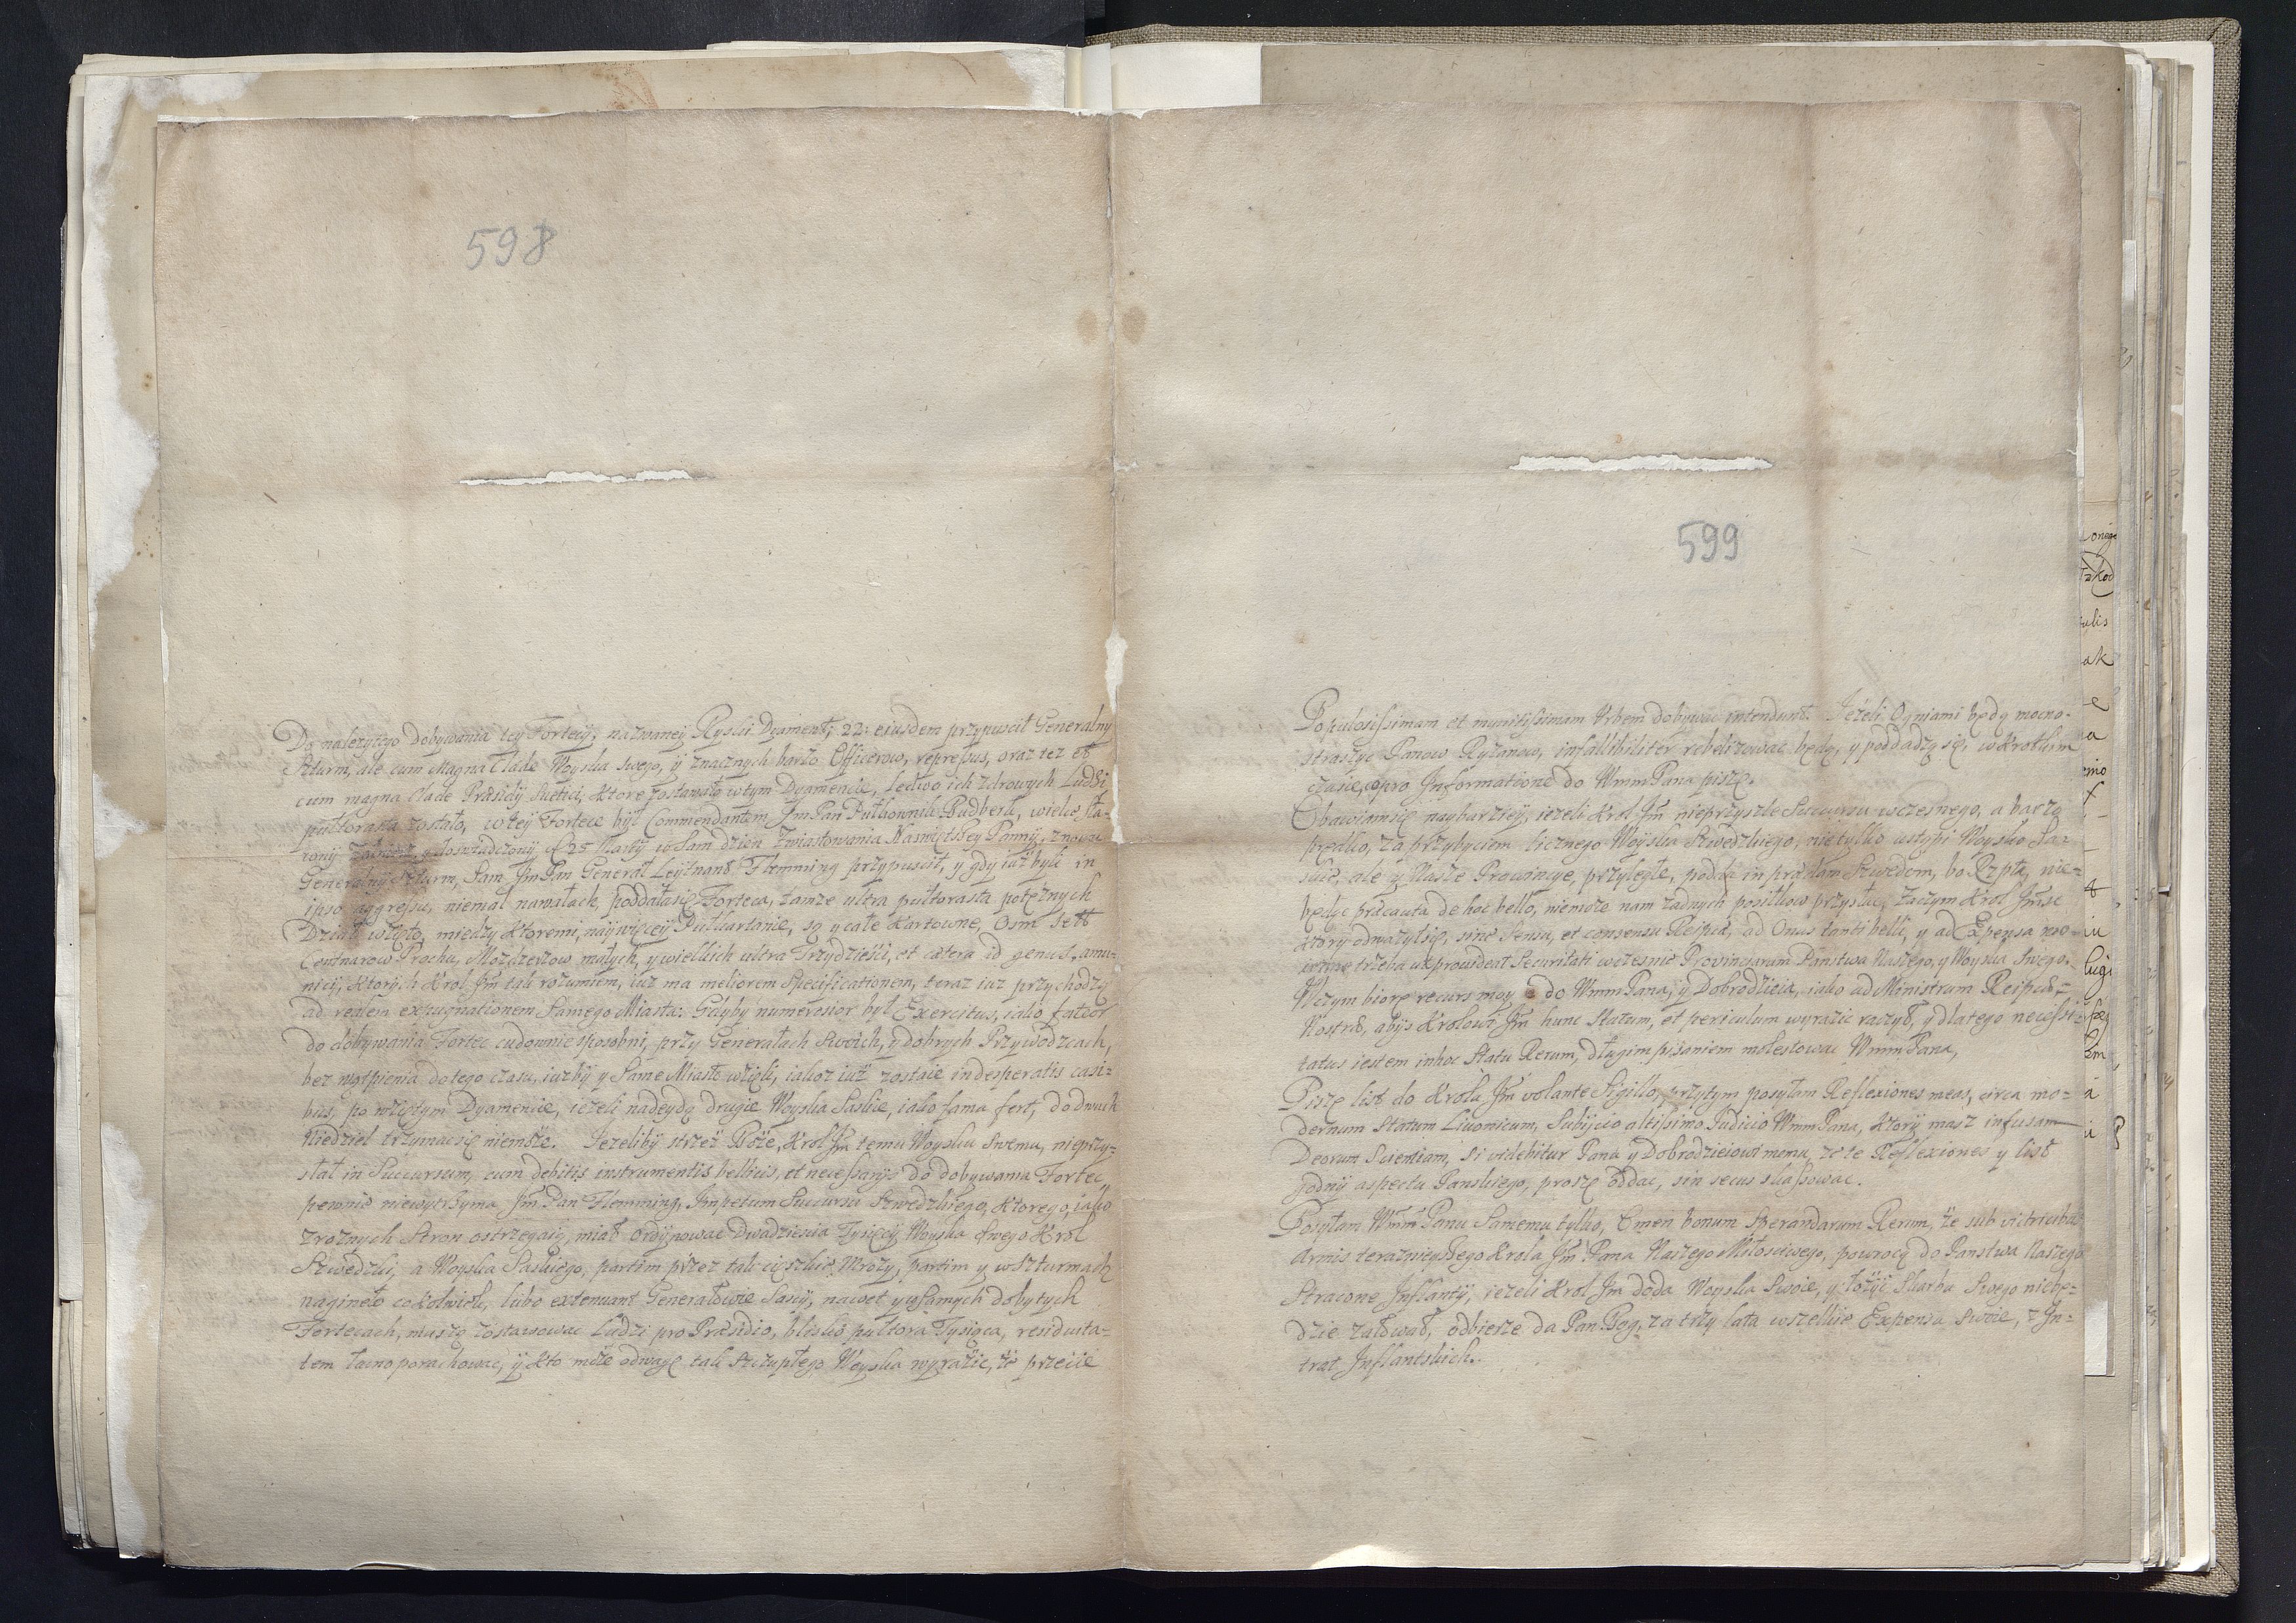 598
Do należytego dobywania tey Fortecy, nazwaney Ryski Dyament, 22: eiusdem przypuscił Generalny
Szturm, ale cum magna Clade Woyska swego, y znacznych barzo Officerow, repressus, oraz tez et
cum magna Clade Præsidij Suetici, ktore zostawało wtym Dyamencie, ledwo ich zdrowych Ludzi
pułtorasta zostało, wtey Fortece był Commendantem Jm Pan Pułkownik Budberk, wielce sta-
rony y doswiadczony 25 Martij w Sam dzien Zwiastowania Naswiętszey Panny, znowu
Generalny Szturm, Sam Jm Pan General Leytnant Flemming przypuscił, y gdy iuż byli in
ipso aggressu, niemal nawałach, poddałasię Forteca, tamże ultra pułtorasta potężnych
Dział wzięto, między ktoremi, naywięcey Pułkartanie, są y całe Kartowne, Osm set
Centnarow Prochu, Mozdzerzow małych, y wielkich ultra Trzydzieści, et cætera id genus, amu-
nicij, ktorych Krol Jm tak rozumiem, iuz ma meliorem Specificationem, teraz iuz przychodzi
ad realem expugnationem Samego Miasta: Gdyby numerosior był Exercitus, iako fateor
do dobywania Fortec cudownie sposobni, przy Generałach Swoich, y dobrych Przywodzcach,
bez wątpienia dotego czasu, iuzby y Same Miasto wzięli, iakoz iuż zostaie indesperatis casi-
bus, po wziętym Dyamencie, ieżeli nadeydą drugie Woyska Saskie, iako fama fert, do dwuch
Niedziel trzymacsię niemoże. Ieżeliby strzeż Boże, Krol Jm temu Woysku Swemu, nieprzy-
słał in Succursum, cum debitis instrumentis bellicis, et necessarijs do dobywania Fortec,
pewnie niewytrzyma Jm Pan Flemming, Impetum Succursu Szwedzkiego, ktorego, iako
zroznych Stron ostrzegaią, miał ordynować Dwadziescia Tysięcy Woyska Swego Krol
Szwedzki, a Woyska Saskiego, partim przez tak cięszkie Mrozy, partim y w Szturmach
nagineło cokolwiek, lubo extenuant Generałowie Sascy, nawet y w Samych dobytych
Fortecach, muszą zostawować Ludzi pro Præsidio, blisko pułtora Tysiąca, residuita-
tem łacno porachować, y kto może odwagę tak szczupłego Woyska wyrazić, że przecie
599
Populosissimam et munitissimam Urbem dobywać intendunt. Ieżeli Ogniami będą mocno
straszyć Panow Ryzanow, infallibiliter rebelizować będą, y poddadzą się, w Krotkim
czasie, pro Informatione do WmmPana piszę.
Obawiamsię naybarziey, ieżeli Krol Jm nieprzyszle Succursu wczesnego, a barzo
prędko, za przybyciem licznego Woyska Szwedzkiego, nietylko ustąpi Woysko Sa-
skie, ale y Nasze Prowincye, przyległe, podda in prædam Szwedom, bo Rzpta, nie-
będąc præcauta de hoc bello, niemoże nam żadnych posiłkow przysłać, zaczym Krol Jmsc
ktory odważyłsię, sine Sensu, et consensu Reipub, ad Onus tanti belli, y ad Expensa wo-
ienne trzeba ut prouideat Securitati wczesnie Prouinciarum Panstwa Naszego, y Woyska Swego.
Wczym biorę recurs moy do WmmPana, y Dobrodzieia, iako ad Ministrum Reipub
Nostræ, abys Krolowi Jm hunc Statum, et periculum wyrazic raczył, y dlatego necessi-
tatus iestem inhoc Statu Rerum, długim pisaniem molestować WmmPana,
Piszę list do Krola Jm volante Sigillo, przytym posyłam Reflexiones meas, circa mo-
dernum Statum Livonicum, Subijcio altissimo Iudicio WmmPana, ktory masz infusam
Deorum Scientiam, si videbitur Panu y Dobrodzieiowi memu, że te Reflexiones y list
godny aspectu Panskiego, proszę oddać, sin secus skassować.
Posyłam Wmm Panu Samemu tylko, Omen bonum Sperandarum Rerum, że sub vitricibus
Armis teraznieyszego Krola Jm Pana Naszego Miłosciwego, powrocą do Panstwa Naszego
Stracone Inflanty, ieżeli Krol Jm doda Woyska Swoie, y łożyć Skarbu Swego niebę-
dzie załował, odbierze da Pan Bog, za trzy lata wszelkie Expensa Swoie, z In-
trat Inflantskich.